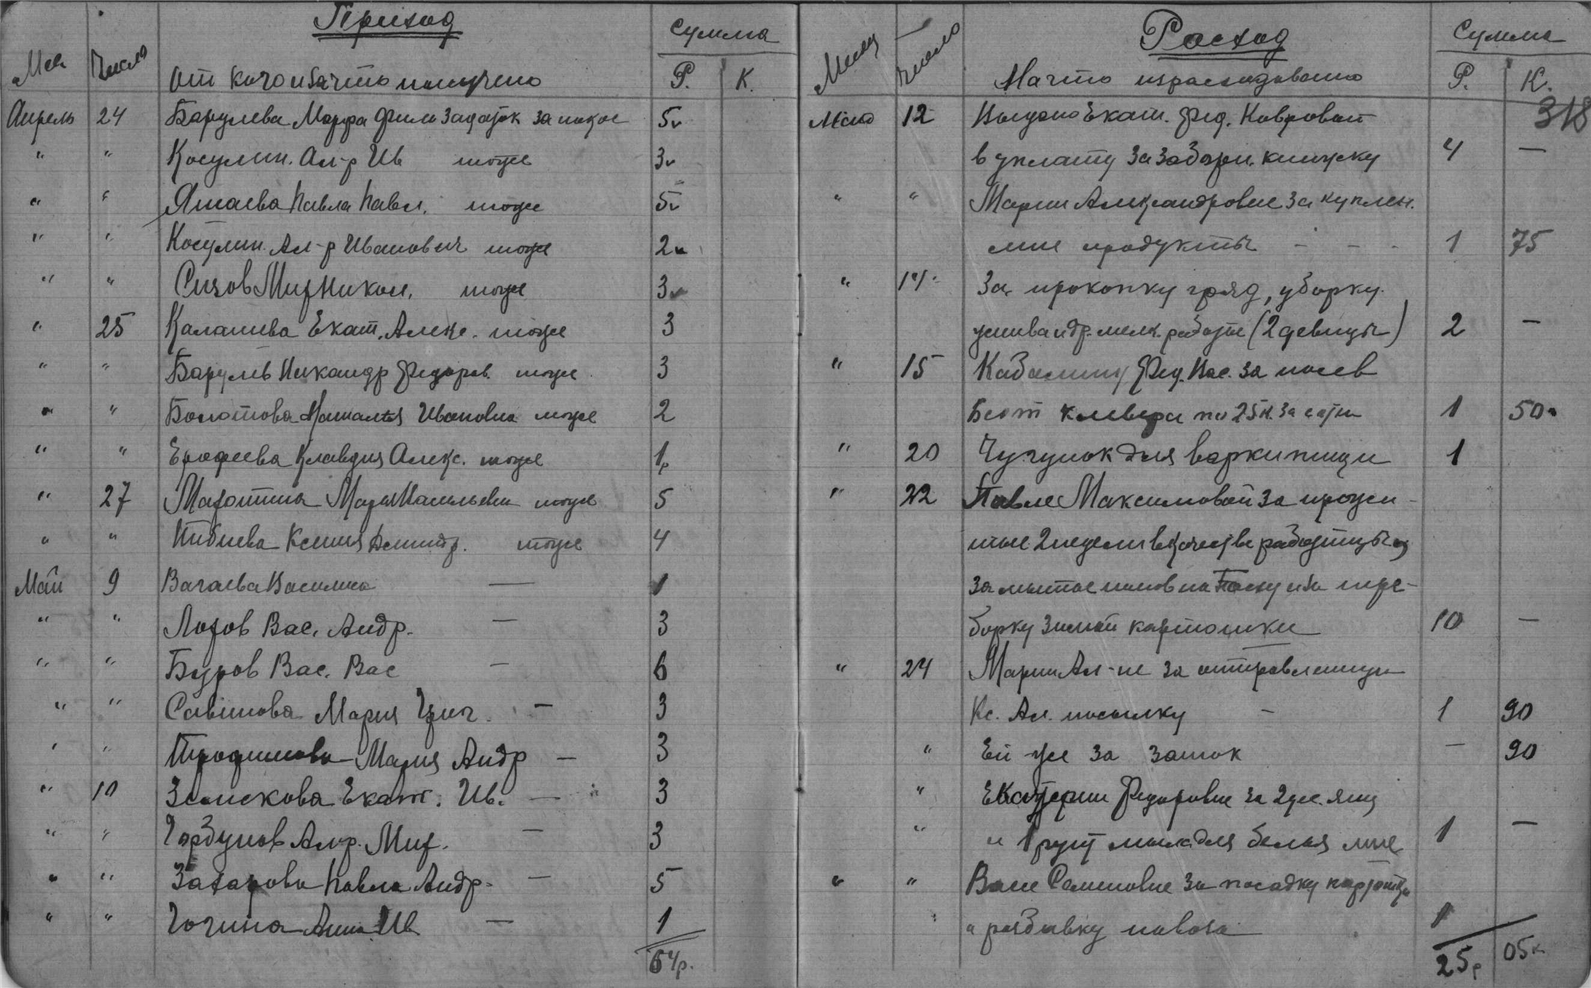 Приход
Мес. Число От кого и за что получено Сумма Р. К.
Апрель 24 Барулева Марфа Фил. задаток за покос 5
" " Косулин. Ал-р Ив тоже 3
" " Яшаева Павла Павл. тоже 5
" " Косулин. Ал-р Иванович тоже 2
" " Сизов Мих Никол. тоже 3
" 25 Калашева Екат. Алекс. тоже 3
" " Барулев Никандр Федоров. тоже 3
" " Болотова Наталья Ивановна тоже 2
" " Ерофеева Клавдия Алекс. тоже 1р
" 27 Мария Васильевна тоже 5
" " Ксения Дмитр. тоже 4
Май 9 Вагаева Василиса — 1
" " Лотов Вас. Андр. — 3
" " Буров Вас. Вас — 6
" " Савинова Мария Григ. — 3
" " Трофимова Мария Андр — 3
" 10 Земскова Екат. Ив. — 3
" " Горбунов Ал-р. Мих. — 3
" " Захарова Павла Андр. — 5
" " Гогина Анна Ив — 1
64р.
Расход
Месяц Число На что израсходовано Сумма Р. К.
318
Мая 12 Екат. Фед. Ковровой
в уплату за забор. книжку 4 —
" " Марии Александровне за куплен.
мне продукты - - - 1 75
" 14 За прокопку гряд, уборку
и др. мелк. работы (2 девицы) 2 —
" 15 Кабалину Фед. Вас. за посев
6 сот клевера по 25 к. за сотку 1 50
" 20 Чугунок для варки пищи 1
" 22 Павле Максимовой за прожи-
тые 2 недели в качестве работницы и
за мытье полов на Пасху и за пере-
борку зимой картошки 10 —
" 24 Марии Ал-не за отправленную
Кс. Ал. посылку - 1 90
" Ей же за замок — 90
" Екатерине Федоровне за 2 дес. яиц
" и 1 фунт мыла для белья мне 1 —
" " Вале Семеновне за посадку картошки
" и разбивку навоза 1
25р 05к